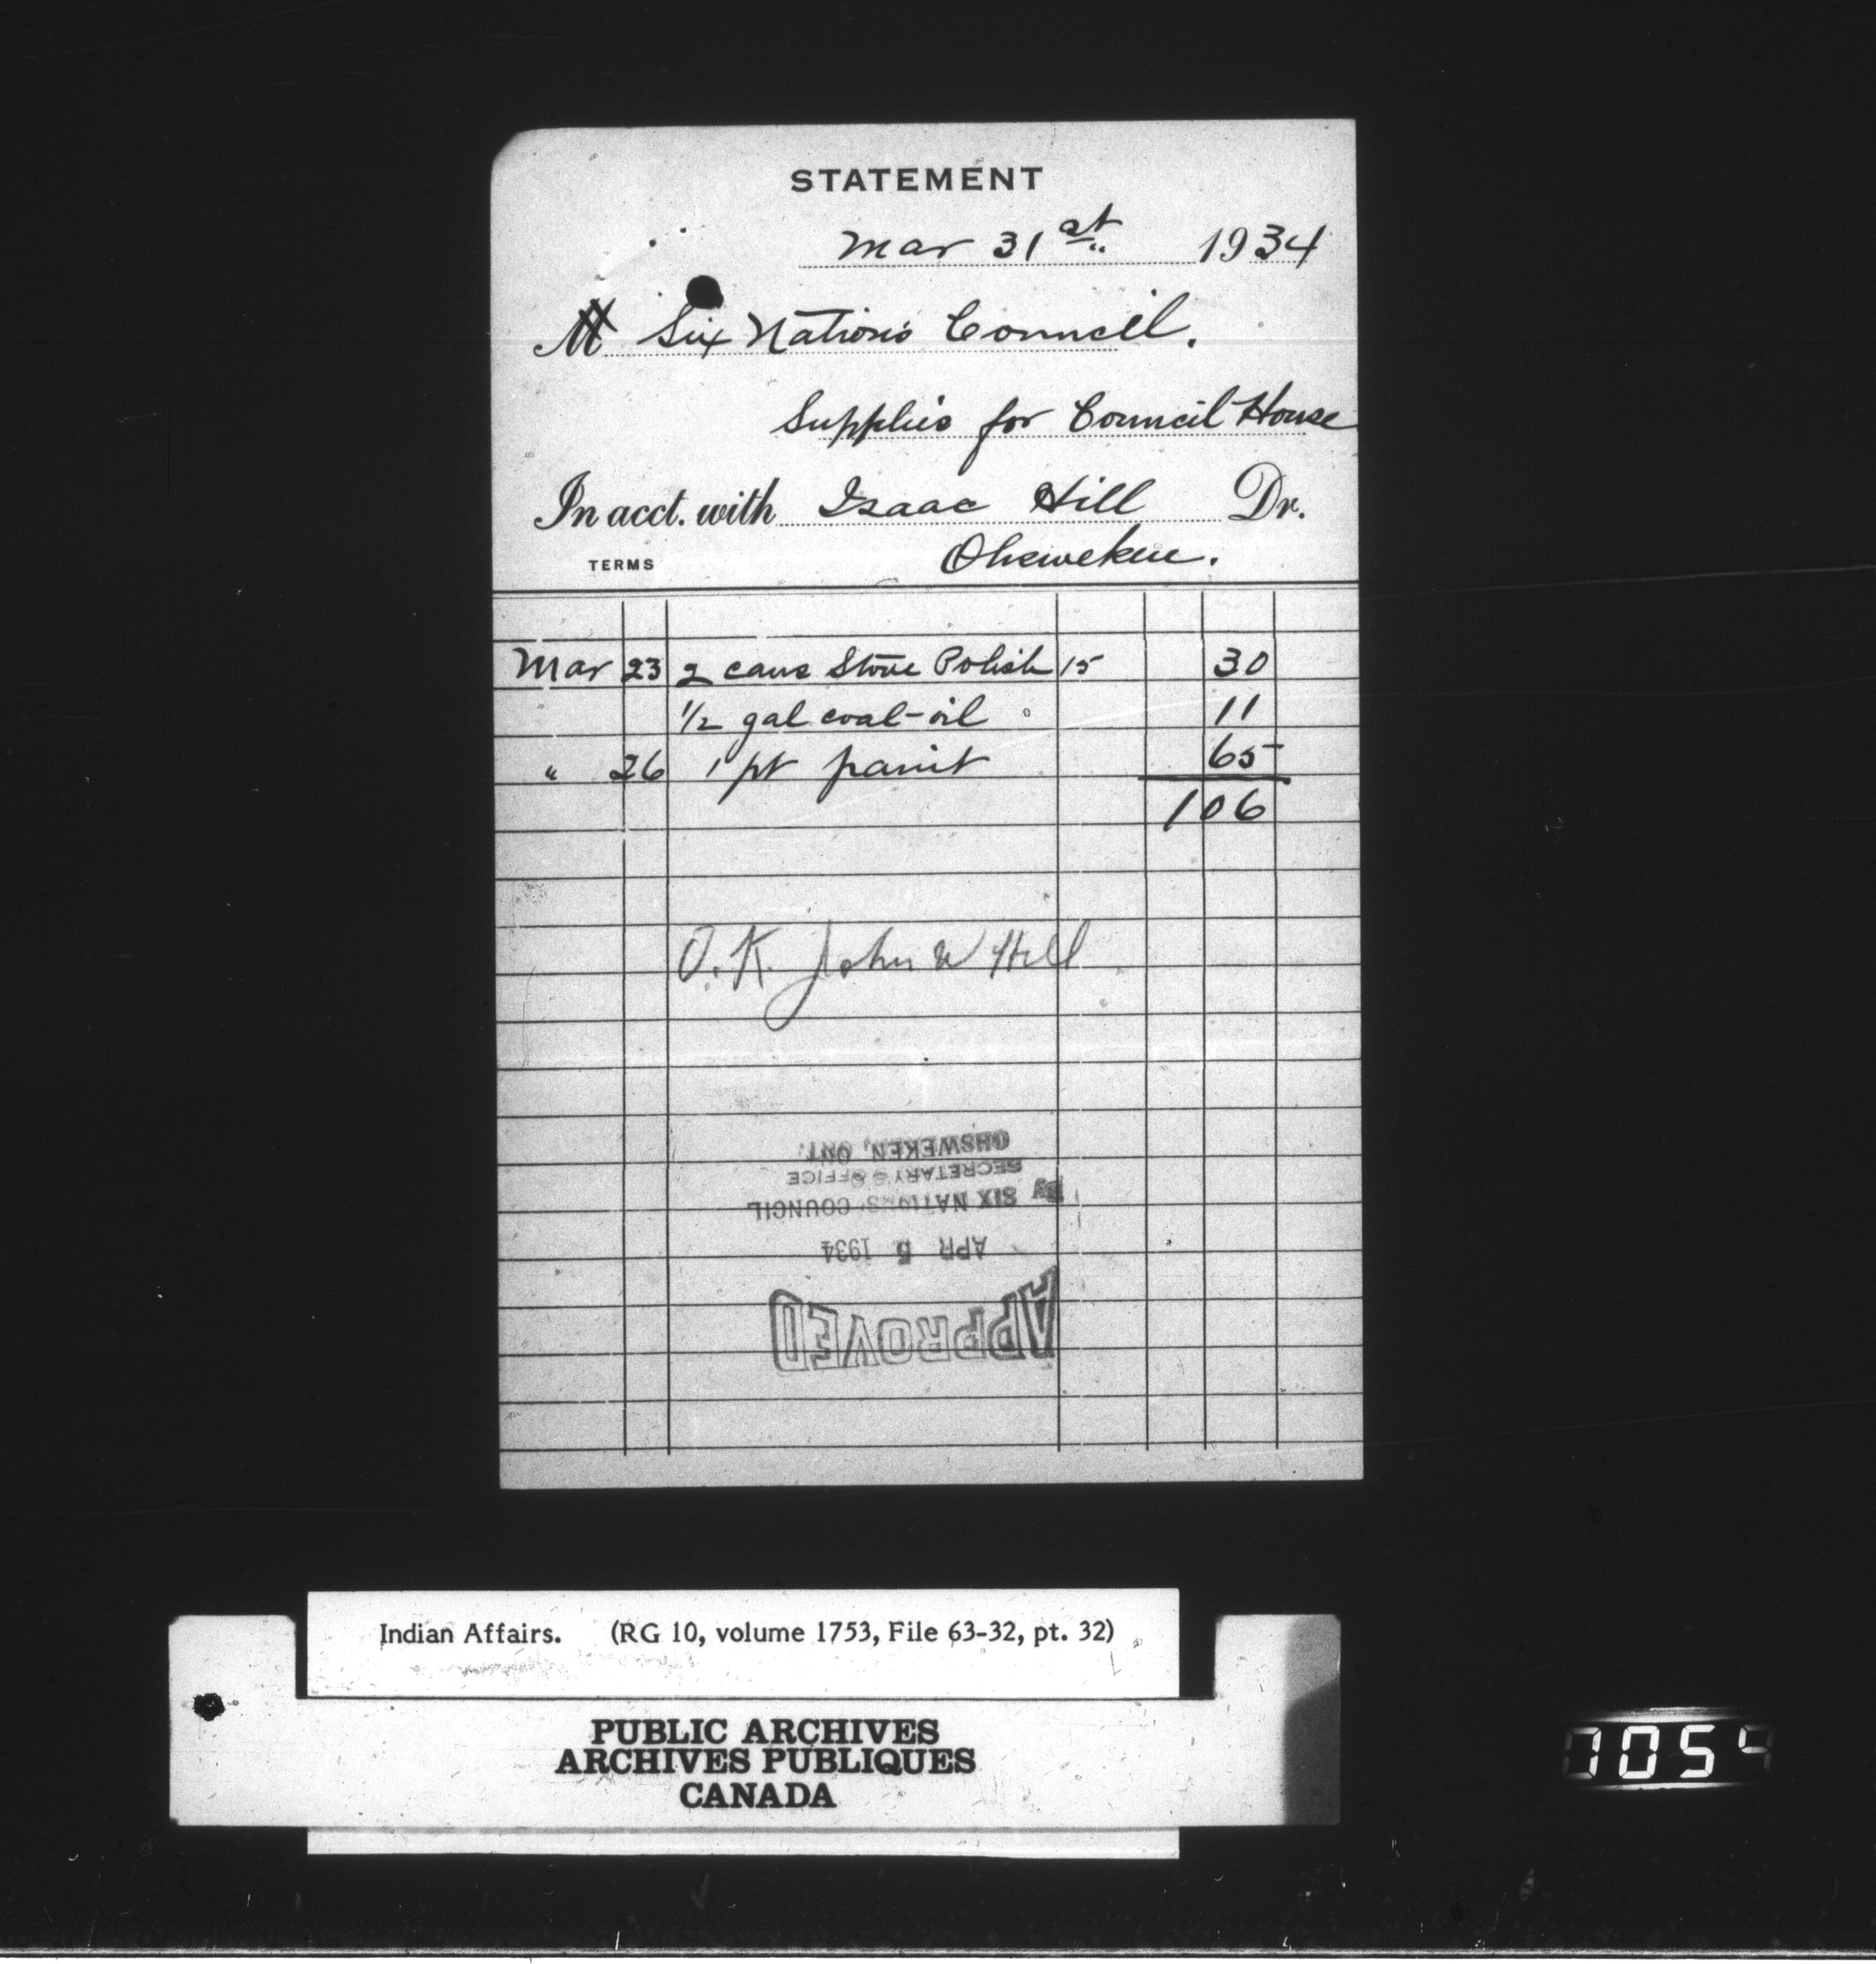 STATEMENT
Mar 31st 1934
M Six Nations Council.
Supplies for Council House
In acct. with Isaac Hill Dr.
TERMS Ohsweken.
Mar 23 2 cans Stove Polish 15 30
1/2 gal coal-oil 11
" 26 1 pt paint 65
106
O.K. John W Hill
OHSWEKEN, ONT.
SECRETARY'S OFFICE
By SIX NATIONS COUNCIL
APR 5 1934
APPROVED
Indian Affairs. (RG 10, volume 1753, File 63-32, pt. 32)
PUBLIC ARCHIVES
ARCHIVES PUBLIQUES
CANADA
1054